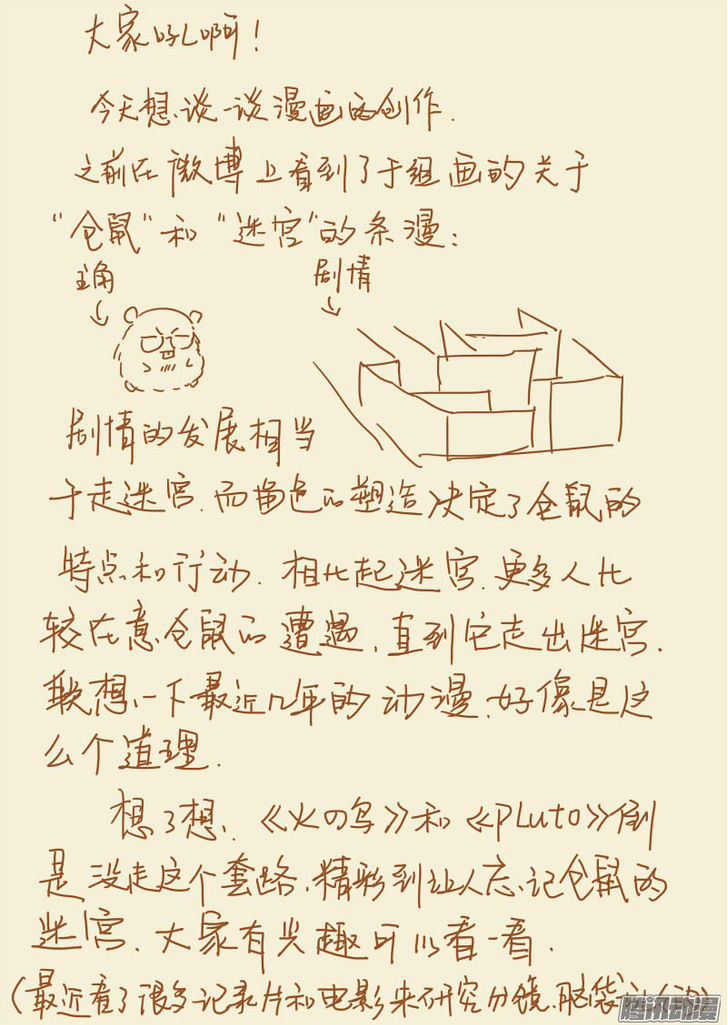 大家好啊！
今天想谈一谈漫画的创作.
之前在微博上看到了于组画的关于
“仓鼠”和“迷宫”的条漫：
主角 剧情
剧情的发展相当
于走迷宫.而角色的塑造决定了仓鼠的
特点和行动.相比起迷宫.更多人比
较在意仓鼠的遭遇.直到它走出迷宫.
联想一下最近几年的动漫.好像是这
么个道理.
想了想.《火の鸟》和《PLUTO》倒
是没走这个套路.精彩到让人忘记仓鼠的
迷宫.大家有兴趣可以看一看.
(最近看了很多记录片和电影来研究分镜.脑袋
腾讯动漫